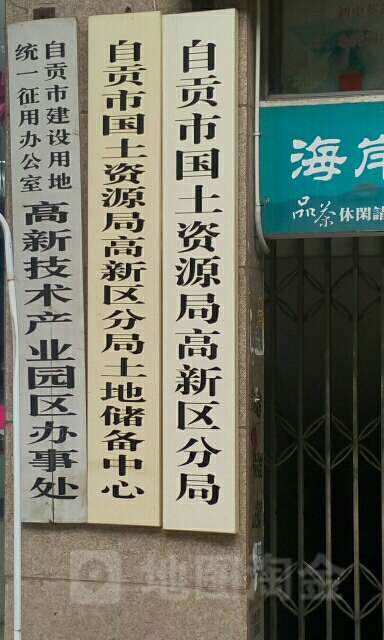 自贡市国土资源局高新区分局
自贡市国土资源局高新区分局土地储备中心
自贡市建设用地
统一征用办公室
高新技术产业园区办事处
海岸
品茶 休閑請
地图淘金